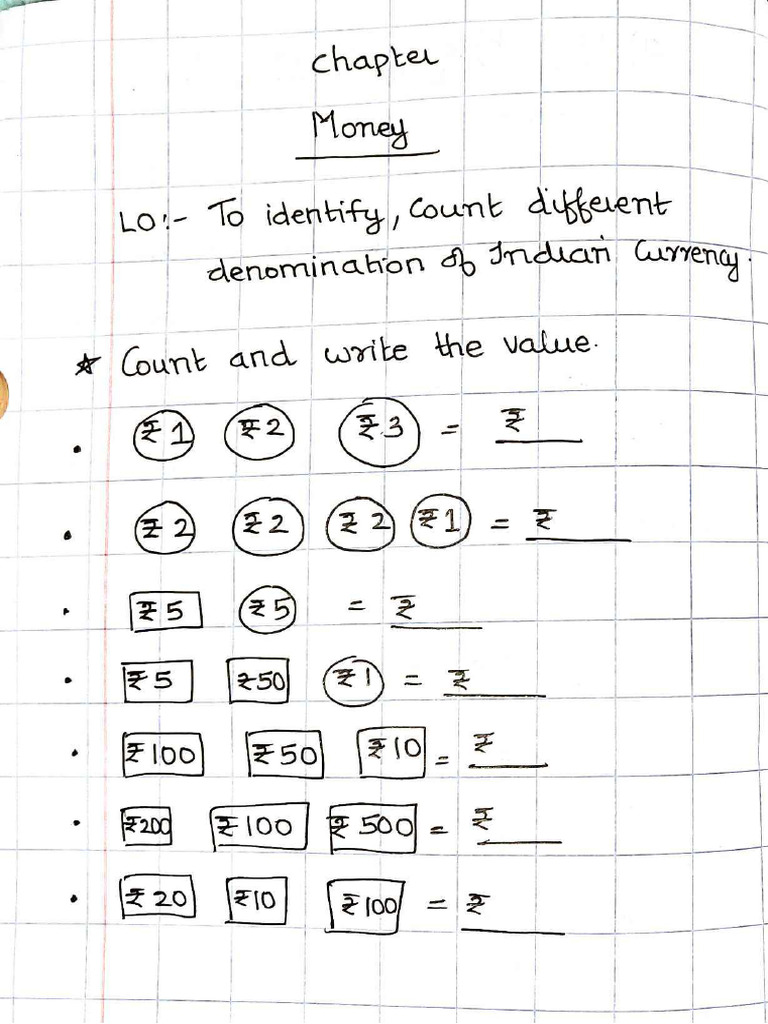 Chapter
Money
LO:- To identify, Count different
denomination of Indian Currency.
* Count and write the value.
• ₹1 ₹2 ₹3 = ₹ ____
• ₹2 ₹2 ₹2 ₹1 = ₹ ____
• ₹5 ₹5 = ₹ ____
• ₹5 ₹50 ₹1 = ₹ ____
• ₹100 ₹50 ₹10 = ₹ ____
• ₹200 ₹100 ₹500 = ₹ ____
• ₹20 ₹10 ₹100 = ₹ ____